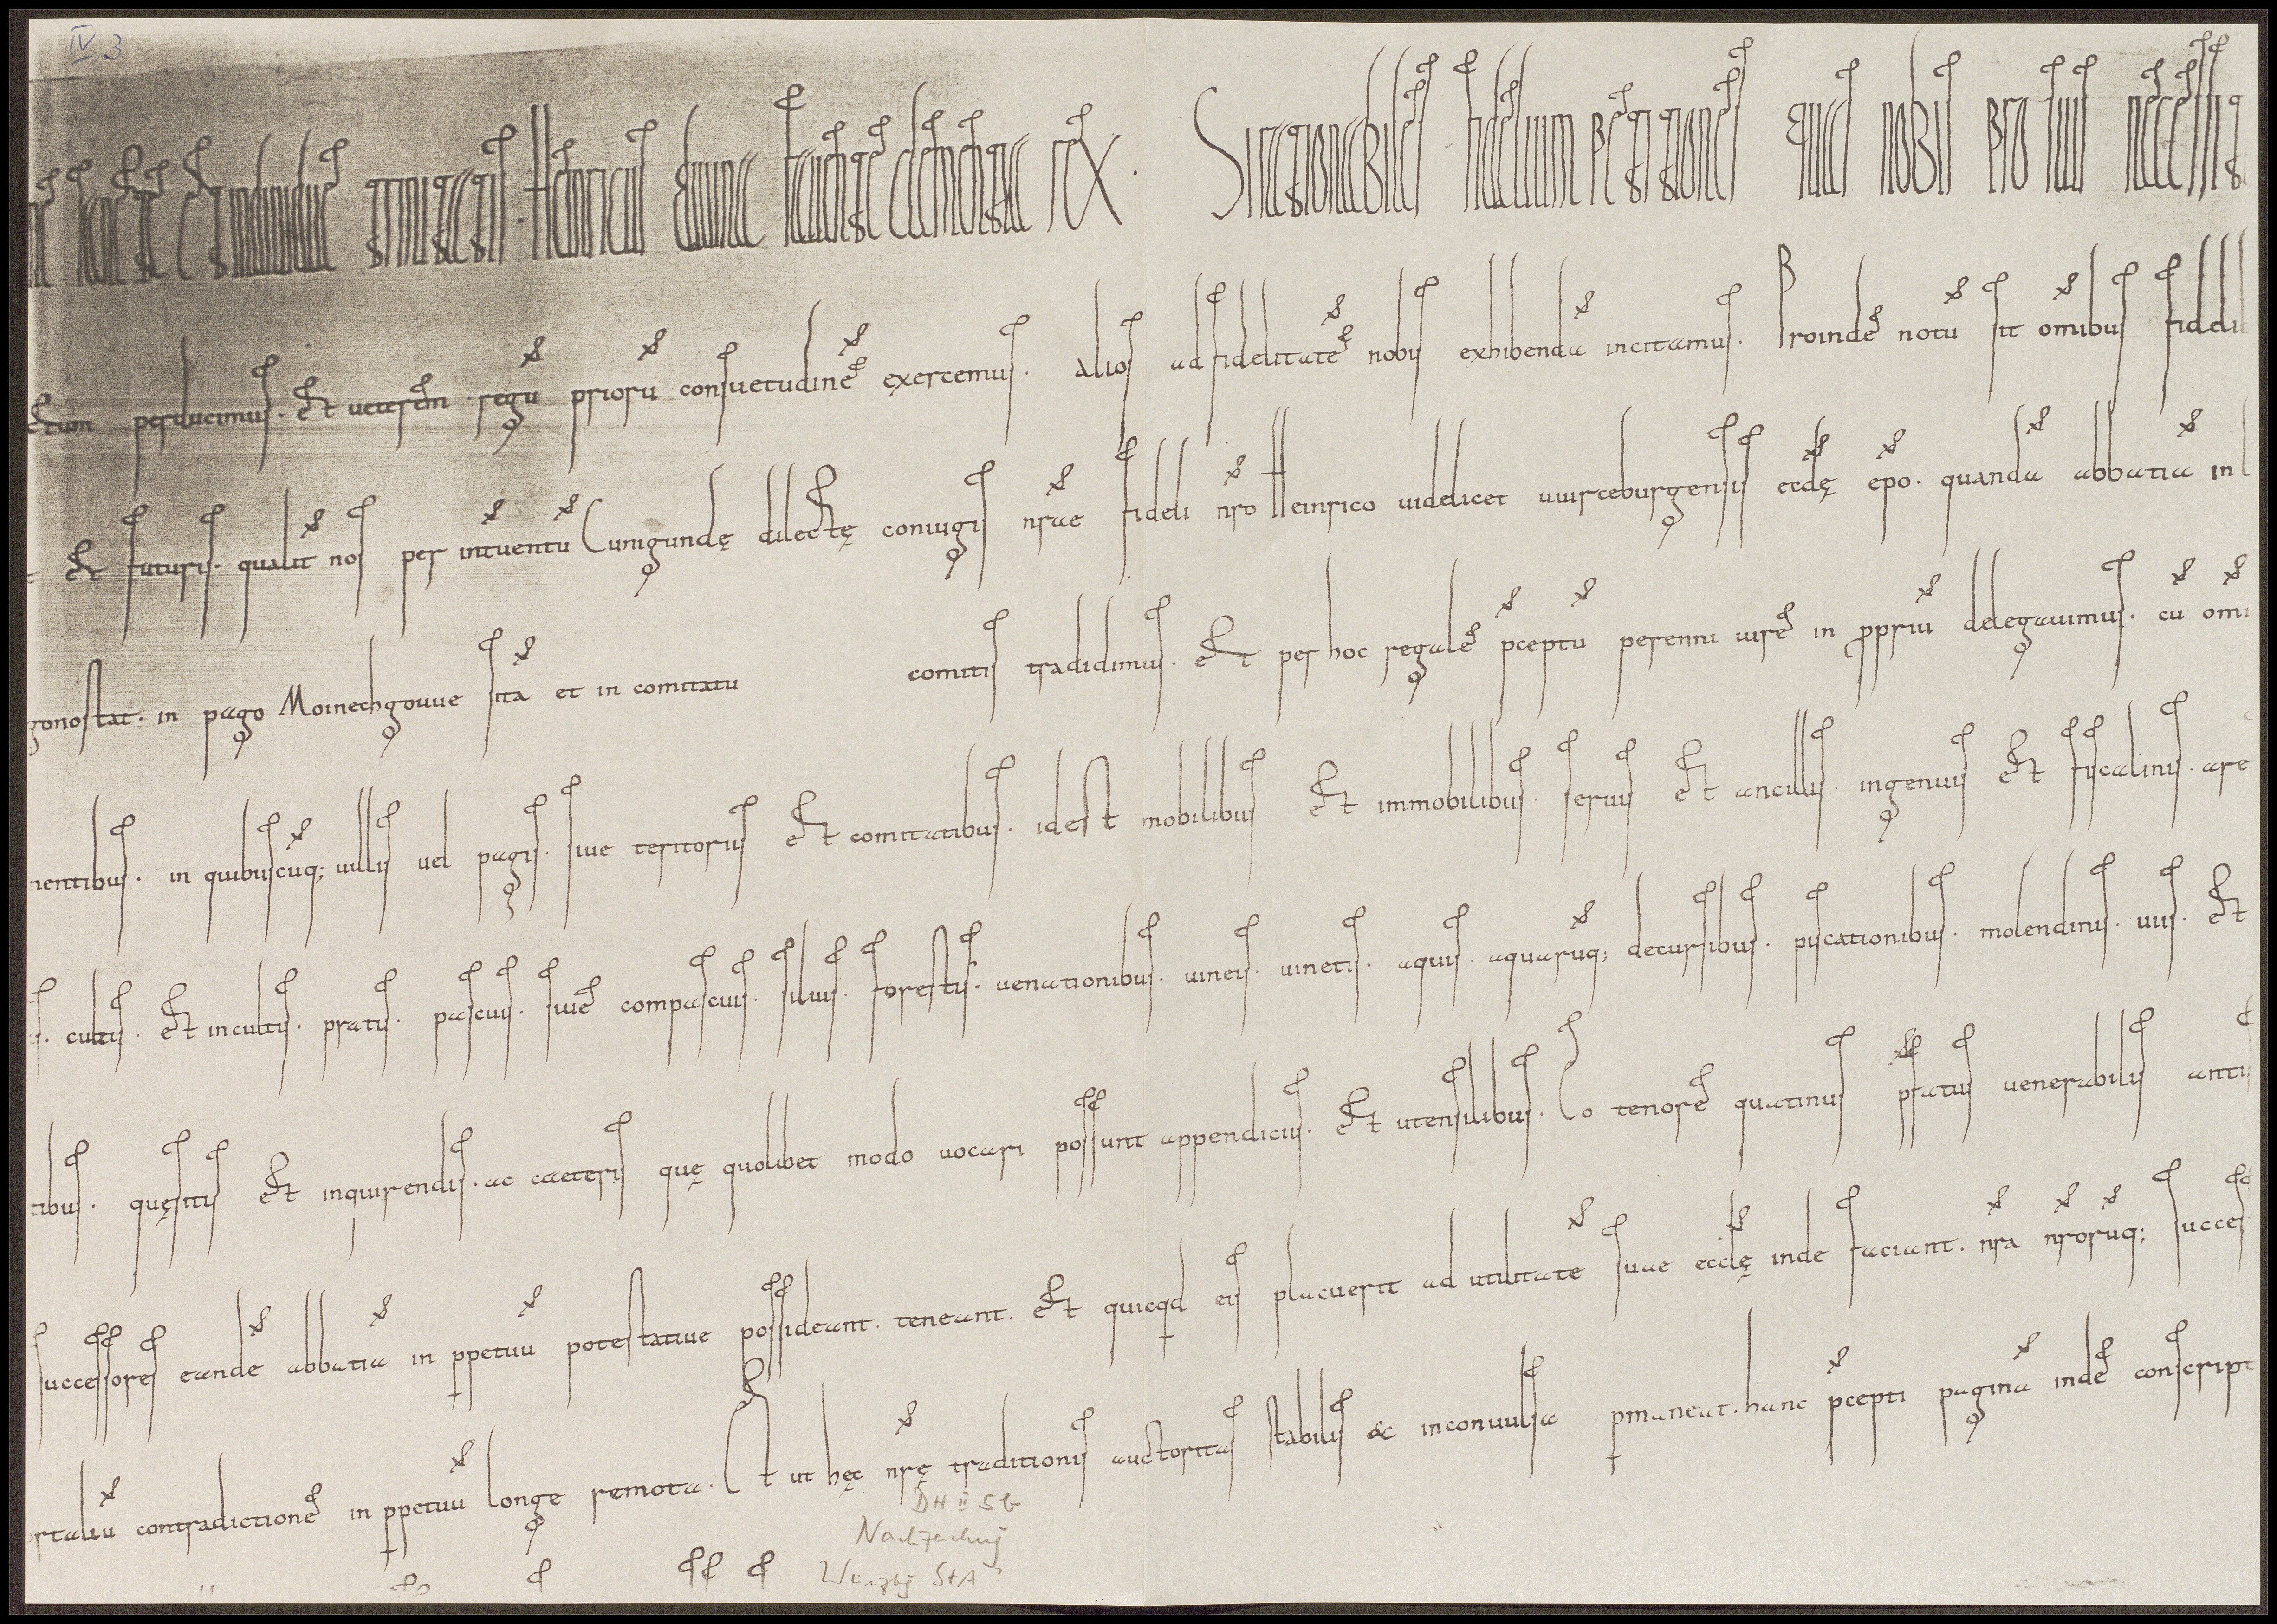 IV 3
sanctae et indiuiduae trinitatis. Heinricus diuina fauente clementia rex. Si rationabiles fidelium petitiones quas nobis pro suis necessit
ectum perducimus. Et ueterem regu prioru consuetudine exercemus. alios ad fidelitate nobis exhibenda incitamus. Proinde notu sit omibus fideli
Et futuris. qualit nos per intuentu Cunigundę dilectę coniugis nrae fideli nro Heinrico uidelicet uuirceburgensis eccłę epo. quanda abbatia in l
gonostat. in pago Moinechgouue sita et in comitatu comitis tradidimus. Et per hoc regale pceptu perenni iure in ppriu delegauimus. cu omi
nentibus. in quibuscuq; uillis uel pagis. siue teritoriis Et comitatibus. idest mobilibus Et immobilibus. seruis Et ancillis. ingenuis Et fiscalinis. are
s. cultis. Et incultis. pratis. pascuis. siue compascuis. siluis. forestis. uenationibus. uineis. uinetis. aquis. aquaruq; decursibus. piscationibus. molendinis. uiis. Et
tibus. quęsitis Et inquirendis. ac caeteris quę quolibet modo uocari possunt appendiciis. Et utensilibus. Eo tenore quatinus pfatus uenerabilis anti
successores eande abbatia in ppetuu potestatiue possideant. teneant. Et quicqd eis placuerit ad utilitate suae eccłę inde faciant. nra nroruq; succes
ortaliu contradictione in ppetuu longe remota. Et ut hęc nrę traditionis auctoritas stabilis & inconuulsa pmaneat. hanc pcepti pagina inde conscript
DH II 5b
Nachzeichng
Würzbg StA